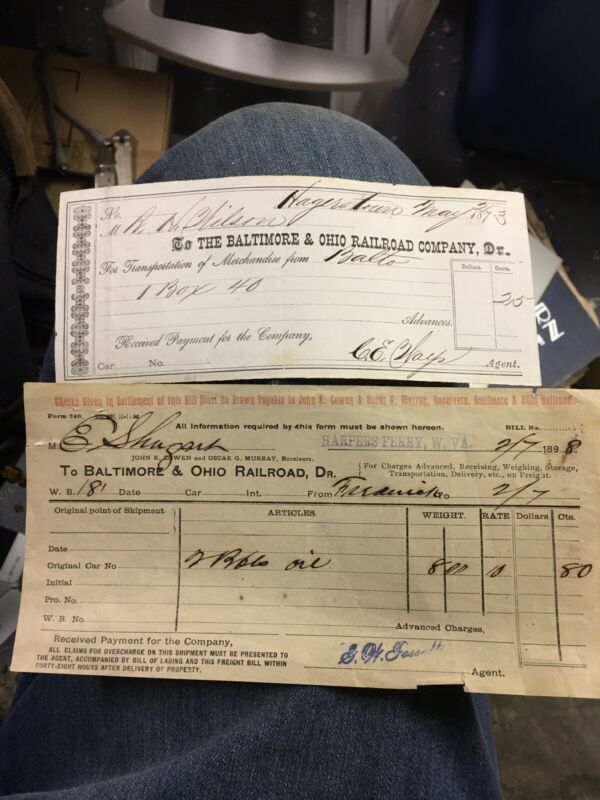 No. Hagerstown May 1873
M A. D. Wilson
To THE BALTIMORE & OHIO RAILROAD COMPANY, Dr.
For Transportation of Merchandise from Balto
Dollars. Cents.
1 Box 40
25
Advances.
Received Payment for the Company,
Car No. Agent.
Checks Given in Settlement of this Bill Must be Drawn Payable to John K. Cowen & Oscar G. Murray, Receivers, Baltimore & Ohio Railroad
Form 240.
All information required by this form must be shown hereon. BILL No.
M E. Shugart HARPERS FERRY, W. VA. 2/7 1898.
JOHN K. COWEN and OSCAR G. MURRAY, Receivers.
To BALTIMORE & OHIO RAILROAD, DR.
For Charges Advanced, Receiving, Weighing, Storage,
Transportation, Delivery, etc., on Freight.
W. B. 181 Date Car Int. From Frederick To 2/7
Original point of Shipment ARTICLES. WEIGHT. RATE Dollars Cts.
Date
Original Car No 2 Bbls oil 800 10 80
Initial
Pro. No.
W. B. No.
Advanced Charges,
Received Payment for the Company,
ALL CLAIMS FOR OVERCHARGE ON THIS SHIPMENT MUST BE PRESENTED TO
THE AGENT, ACCOMPANIED BY BILL OF LADING AND THIS FREIGHT BILL WITHIN
FORTY-EIGHT HOURS AFTER DELIVERY OF PROPERTY.
G. W. Agent.